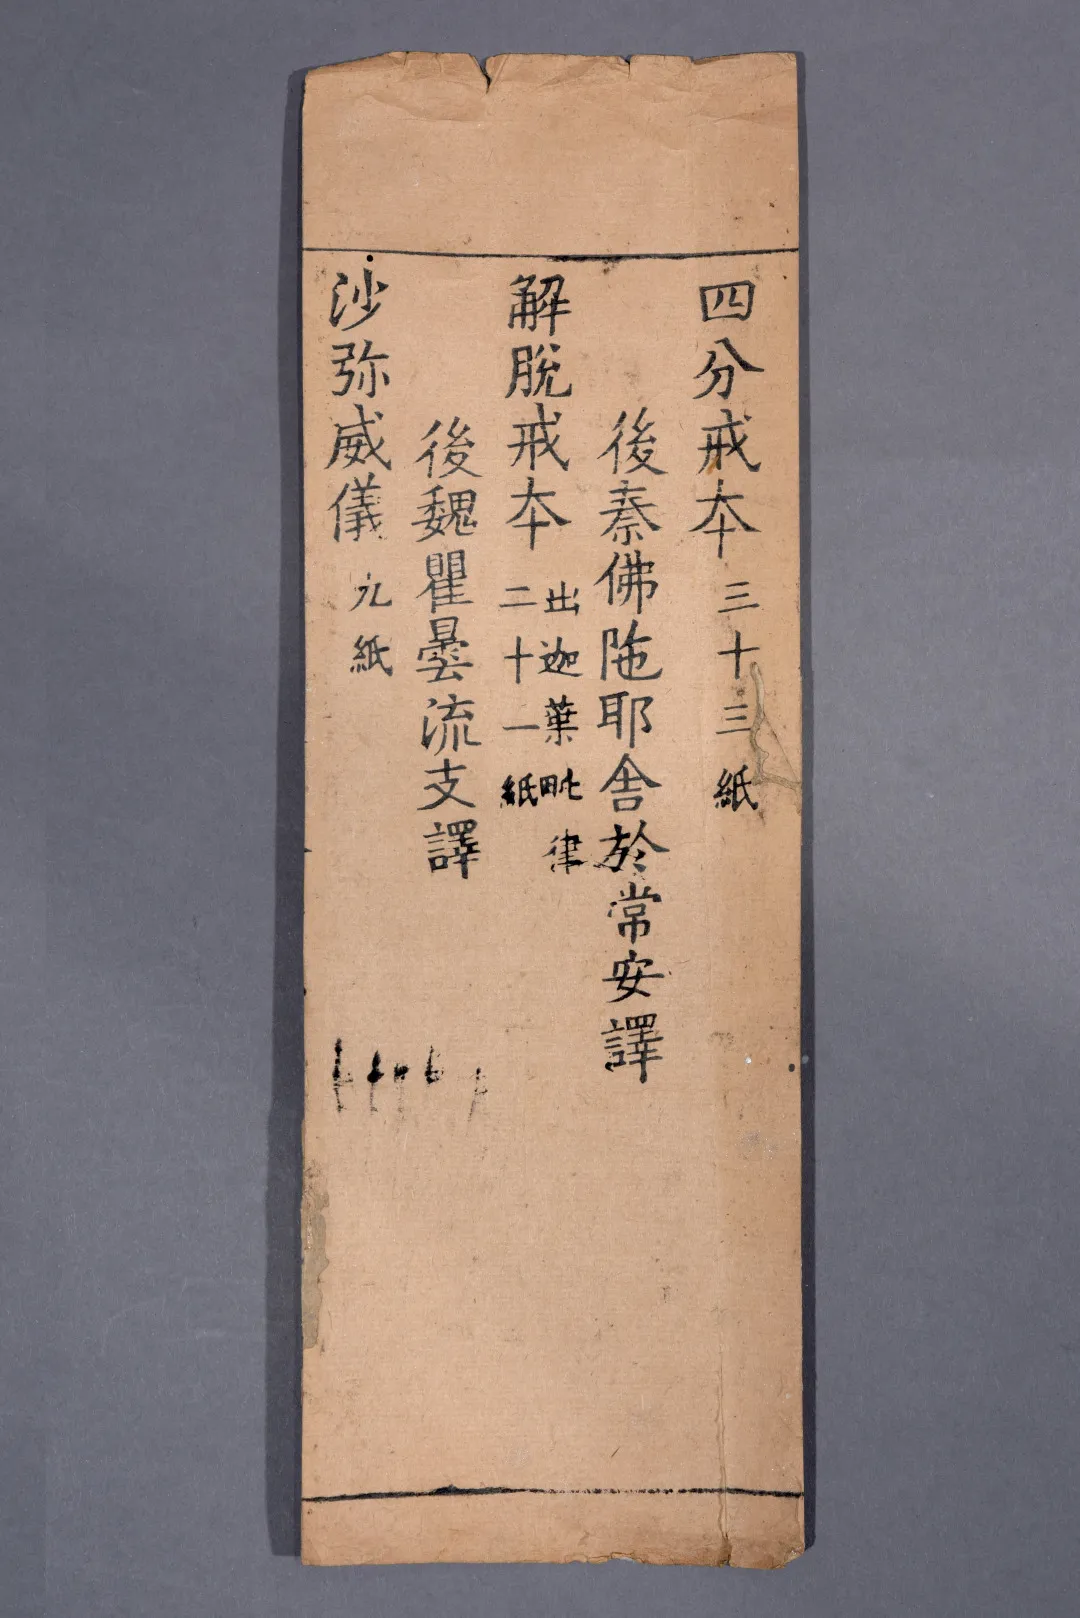 四分戒本 三十三紙
後秦佛陁耶舍於常安譯
解脫戒本 出迦葉毗律
二十一紙
後魏瞿曇流支譯
沙弥威儀 九紙